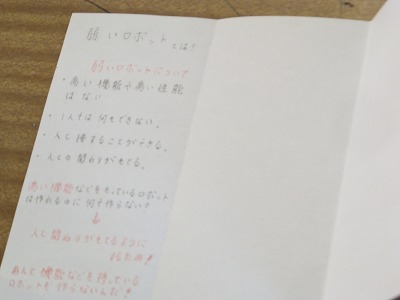 弱いロボットとは?
弱いロボットについて
・高い機能や高い性能
はない
・1人では何もできない。
・人と接することができる。
・人との関わりがもてる。
高い機能などをもっているロボット
は作れるのに何で作らない?
↓
人と関わりがもてるように
するため!
あえて機能などを持っている
ロボットを作らないんだ!